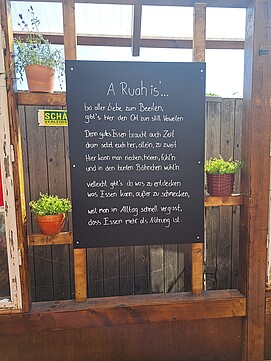 A Ruah is'...
bei aller Liebe zum Beeilen,
gibt's hier den Ort zum still Verweilen
Denn gutes Essen braucht auch Zeit
drum setzt euch her, allein, zu zweit
Hier kann man riechen, hören, fühl'n
und in den bunten Böhnchen wühl'n
vielleicht gibt's da was zu entdecken
was Essen kann, außer zu schmecken,
weil man im Alltag schnell vergisst,
dass Essen mehr als Nahrung ist.
SCHÄ